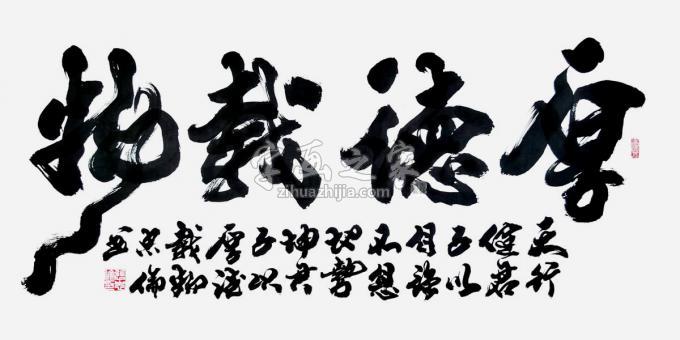 厚德載物
天行
健君
子以
自強
不息
地勢
坤君
子以
厚德
載物
倫
書
字画之家
zihuazhijia.com